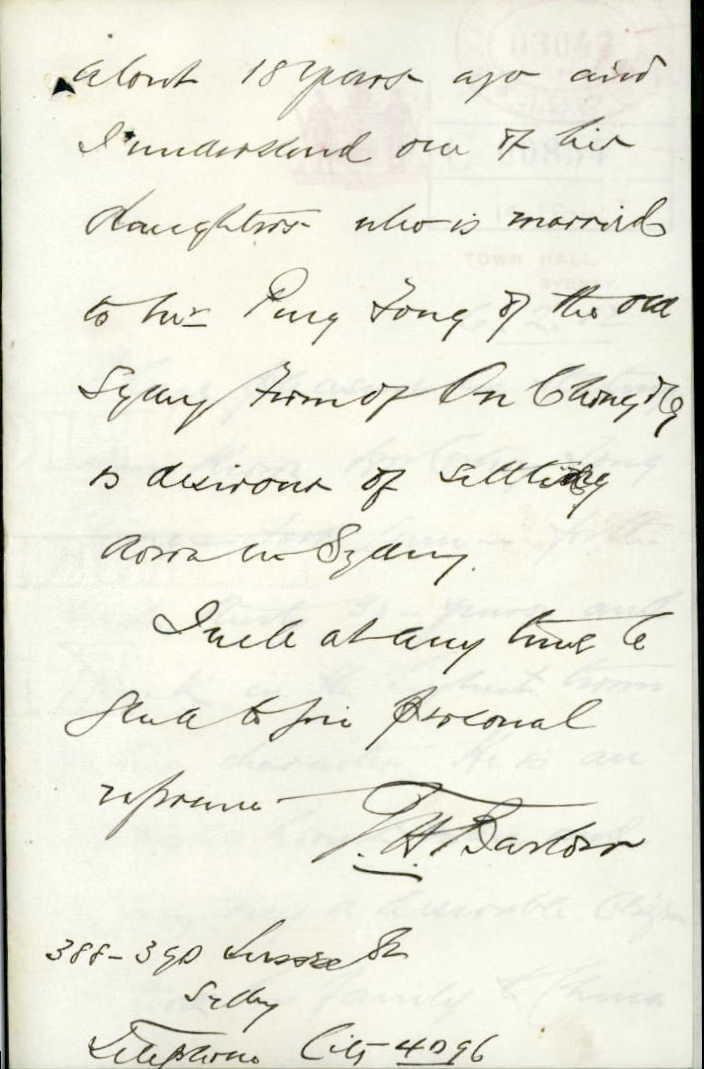 about 18 years ago and
I understand one of his
daughters who is married
to Mr Ping Fong of the old
Sydney Firm of On Chong & Co
is desirous of settling
down in Sydney.
I will at any time be
glad to give personal
reference
T. H. Barlow
388-390 Sussex St
Sydney
Telephone City 4096
TOWN HALL,
SYDNEY